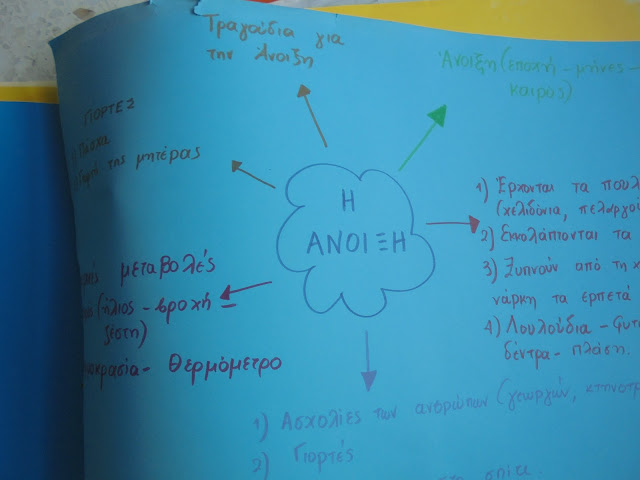 Τραγούδια για
την Άνοιξη
Άνοιξη (εποχή - μήνες -
καιρός)
ΓΙΟΡΤΕΣ
Πάσχα
Γιορτή της μητέρας
Η
ΑΝΟΙΞΗ
1) Έρχονται τα πουλ
(χελιδόνια, πελαργοί
2) Εκκολάπτονται τα
3) Ξυπνούν από τη χ
νάρκη τα ερπετά
4) Λουλούδια - φυτ
δέντρα - πλάση.
μεταβολές
(ήλιος - βροχή -
ζέστη)
κρασία - Θερμόμετρο
1) Ασχολίες των ανθρώπων (γεωργών, κτηνοτρ
2) Γιορτές
σπίτι.